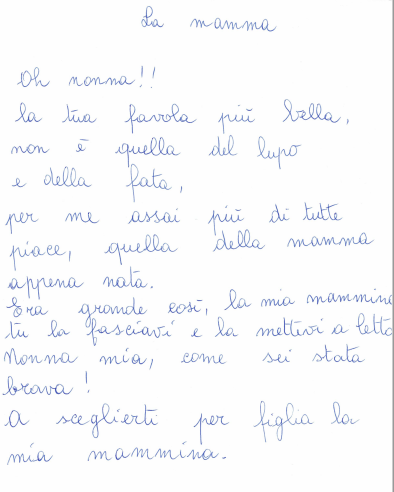 La mamma
Oh nonna!!
la tua favola più bella,
non è quella del lupo
e della fata,
per me assai più di tutte
piace, quella della mamma
appena nata.
Era grande così, la mia mammina
tu la fasciavi e la mettevi a letto
Nonna mia, come sei stata
brava!
A sceglierti per figlia la
mia mammina.